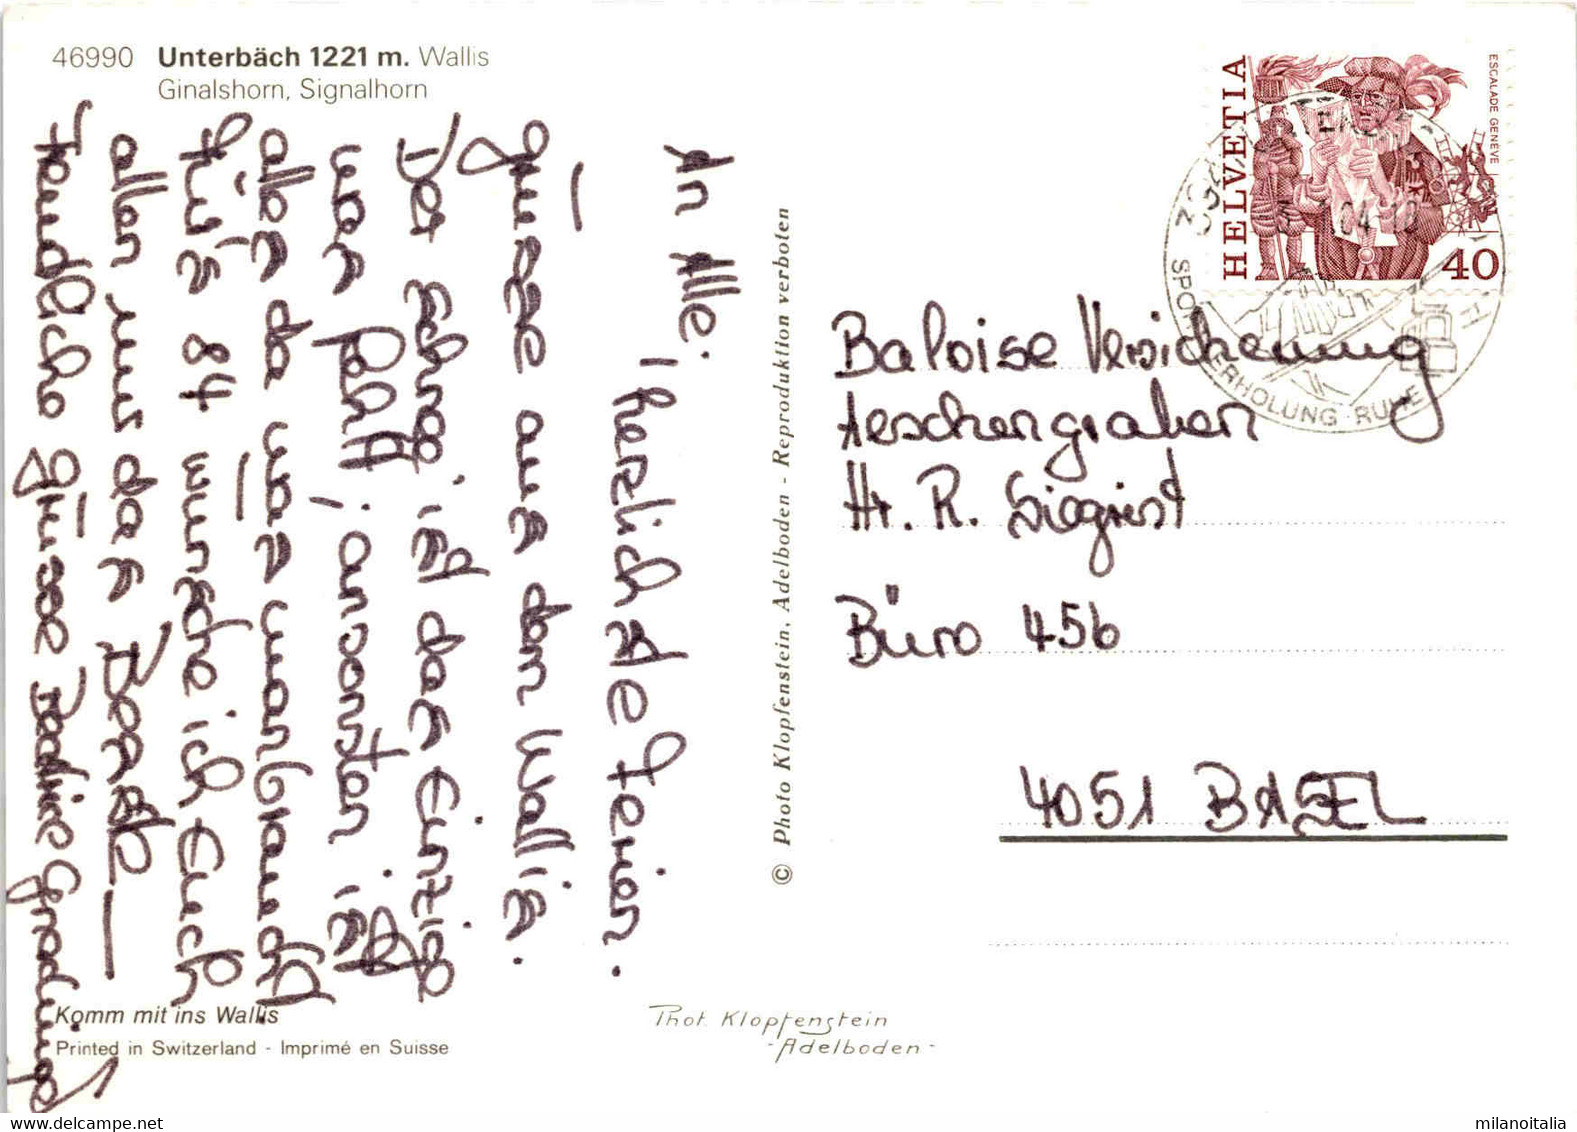 46990 Unterbäch 1221 m. Wallis
Ginalshorn, Signalhorn
An Alle:
'herzlichste Ferien.
grüsse aus dem Wallis.
Der Schnee ist das Einzige
was fehlt; ansonsten ist
alles da was man braucht
Für's 84 wünsche ich Euch
allen nur das Beste
Freundliche Grüsse
Komm mit ins Wallis
Printed in Switzerland - Imprimé en Suisse
© Photo Klopfenstein, Adelboden - Reproduktion verboten
Phot. Klopfenstein
- Adelboden -
HELVETIA
ESCALADE GENEVE
40
SPORT ERHOLUNG RUHE
Baloise Versicherung
Aeschengraben
Hr. R. Siegrist
Büro 456
4051 BASEL
milanoitalia